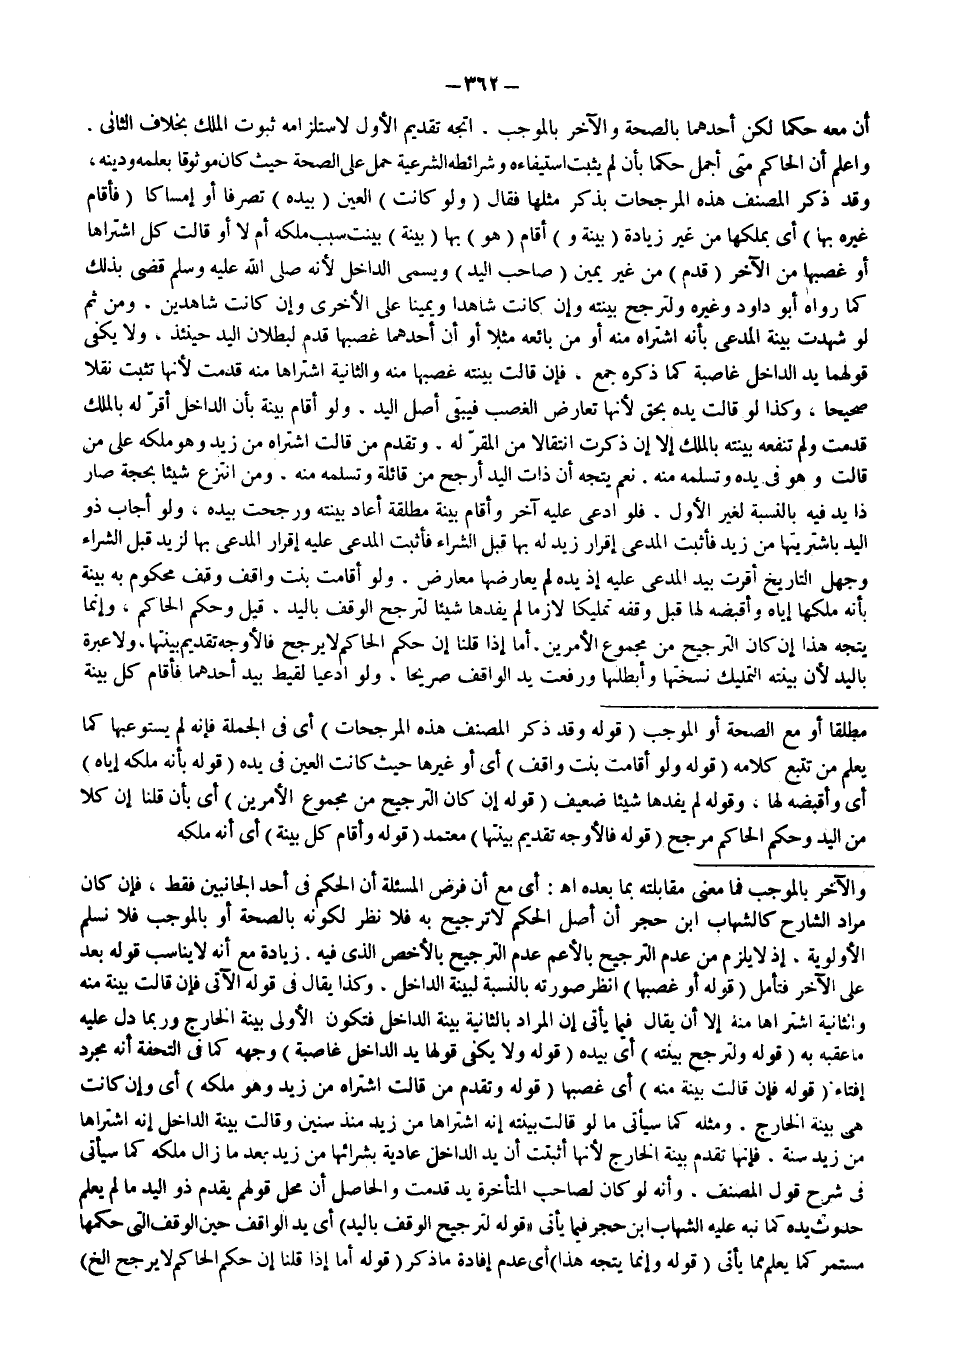 – ٣٦٢ –
أن معه حكما لكن أحدهما بالصحة والآخر بالموجب . اتجه تقديم الأول لاستلزامه ثبوت الملك بخلاف الثانى .
واعلم أن الحاكم متى أجمل حكما بأن لم يثبت استيفاءه وشرائطه الشرعية حمل على الصحة حيث كان موثوقا بعلمه ودينه ،
وقد ذكر المصنف هذه المرجحات بذكر مثلها فقال ( ولو كانت ) العين ( بيده ) تصرفا أو إمساكا ( فأقام
غيره بها ) أى بملكها من غير زيادة ( بينة و ) أقام ( هو ) بها ( بينة ) بينت سبب ملكه أم لا أو قالت كل اشتراها
أو غصبها من الآخر ( قدم ) من غير يمين ( صاحب اليد ) ويسمى الداخل لأنه صلى الله عليه وسلم قضى بذلك
كما رواه أبو داود وغيره ولترجح بينته وإن كانت شاهدا ويمينا على الأخرى وإن كانت شاهدين . ومن ثم
لو شهدت بينة المدعى بأنه اشتراه منه أو من بائعه مثلا أو أن أحدهما غصبها قدم لبطلان اليد حينئذ ، ولا يكفى
قولهما يد الداخل غاصبة كما ذكره جمع . فإن قالت بينته غصبها منه والثانية اشتراها منه قدمت لأنها تثبت نقلا
صحيحا ، وكذا لو قالت يده بحق لأنها تعارض الغصب فيبقى أصل اليد . ولو أقام بينة بأن الداخل أقرّ له بالملك
قدمت ولم تنفعه بينته بالملك إلا إن ذكرت انتقالا من المقرّ له . وتقدم من قالت اشتراه من زيد وهو ملكه على من
قالت وهو فى يده وتسلمه منه . نعم يتجه أن ذات اليد أرجح من قائلة وتسلمه منه . ومن انتزع شيئا بحجة صار
ذا يد فيه بالنسبة لغير الأول . فلو ادعى عليه آخر وأقام بينة مطلقة أعاد بينته ورجحت بيده ، ولو أجاب ذو
اليد باشتريتها من زيد فأثبت المدعى إقرار زيد له بها قبل الشراء فأثبت المدعى عليه إقرار المدعى بها لزيد قبل الشراء
وجهل التاريخ أقرت بيد المدعى عليه إذ يده لم يعارضها معارض . ولو أقامت بنت واقف وقف محكوم به بينة
بأنه ملكها إياه وأقبضه لها قبل وقفه تمليكا لازما لم يفدها شيئا لترجح الوقف باليد . قيل وحكم الحاكم ، وإنما
يتجه هذا إن كان الترجيح من مجموع الأمرين . أما إذا قلنا إن حكم الحاكم لا يرجح فالأوجه تقديم بينتها ، ولا عبرة
باليد لأن بينته التمليك نسختها وأبطلها ورفعت يد الواقف صريحا . ولو ادعيا لقيط بيد أحدهما فأقام كل بينة
مطلقا أو مع الصحة أو الموجب ( قوله وقد ذكر المصنف هذه المرجحات ) أى فى الجملة فإنه لم يستوعبها كما
يعلم من تتبع كلامه ( قوله ولو أقامت بنت واقف ) أى أو غيرها حيث كانت العين فى يده ( قوله بأنه ملكه إياه )
أى وأقبضه لها ، وقوله لم يفدها شيئا ضعيف ( قوله إن كان الترجيح من مجموع الأمرين ) أى بأن قلنا إن كلا
من اليد وحكم الحاكم مرجح ( قوله فالأوجه تقديم بينتها ) معتمد ( قوله وأقام كل بينة ) أى أنه ملكه
والآخر بالموجب فما معنى مقابلته بما بعده اهـ : أى مع أن فرض المسئلة أن الحكم فى أحد الجانبين فقط ، فإن كان
مراد الشارح كالشهاب ابن حجر أن أصل الحكم لا ترجيح به فلا نظر لكونه بالصحة أو بالموجب فلا نسلم
الأولوية . إذ لا يلزم من عدم الترجيح بالأعم عدم الترجيح بالأخص الذى فيه . زيادة مع أنه لا يناسب قوله بعد
على الآخر فتأمل ( قوله أو غصبها ) انظر صورته بالنسبة لبينة الداخل . وكذا يقال فى قوله الآتى فإن قالت بينة منه
والثانية اشتراها منه إلا أن يقال فيما يأتى إن المراد بالثانية بينة الداخل فتكون الأولى بينة الخارج وربما دل عليه
ما عقبه به ( قوله ولترجح بينته ) أى بيده ( قوله ولا يكفى قولها يد الداخل غاصبة ) وجهه كما فى التحفة أنه مجرد
إفتاء ( قوله فإن قالت بينة منه ) أى غصبها ( قوله وتقدم من قالت اشتراه من زيد وهو ملكه ) أى وإن كانت
هى بينة الخارج . ومثله كما سيأتى ما لو قالت بينته إنه اشتراها من زيد منذ سنين وقالت بينة الداخل إنه اشتراها
من زيد سنة . فإنها تقدم بينة الخارج لأنها أثبتت أن يد الداخل عادية بشرائها من زيد بعد ما زال ملكه كما سيأتى
فى شرح قول المصنف . وأنه لو كان لصاحب المتأخرة يد قدمت والحاصل أن محل قولهم يقدم ذو اليد ما لم يعلم
حدوث يده كما نبه عليه الشهاب ابن حجر فيما يأتى ( قوله لترجيح الوقف باليد ) أى يد الواقف حين الوقف التى حكمها
مستمر كما يعلم مما يأتى ( قوله وإنما يتجه هذا ) أى عدم إفادة ما ذكر ( قوله أما إذا قلنا إن حكم الحاكم لا يرجح الخ )